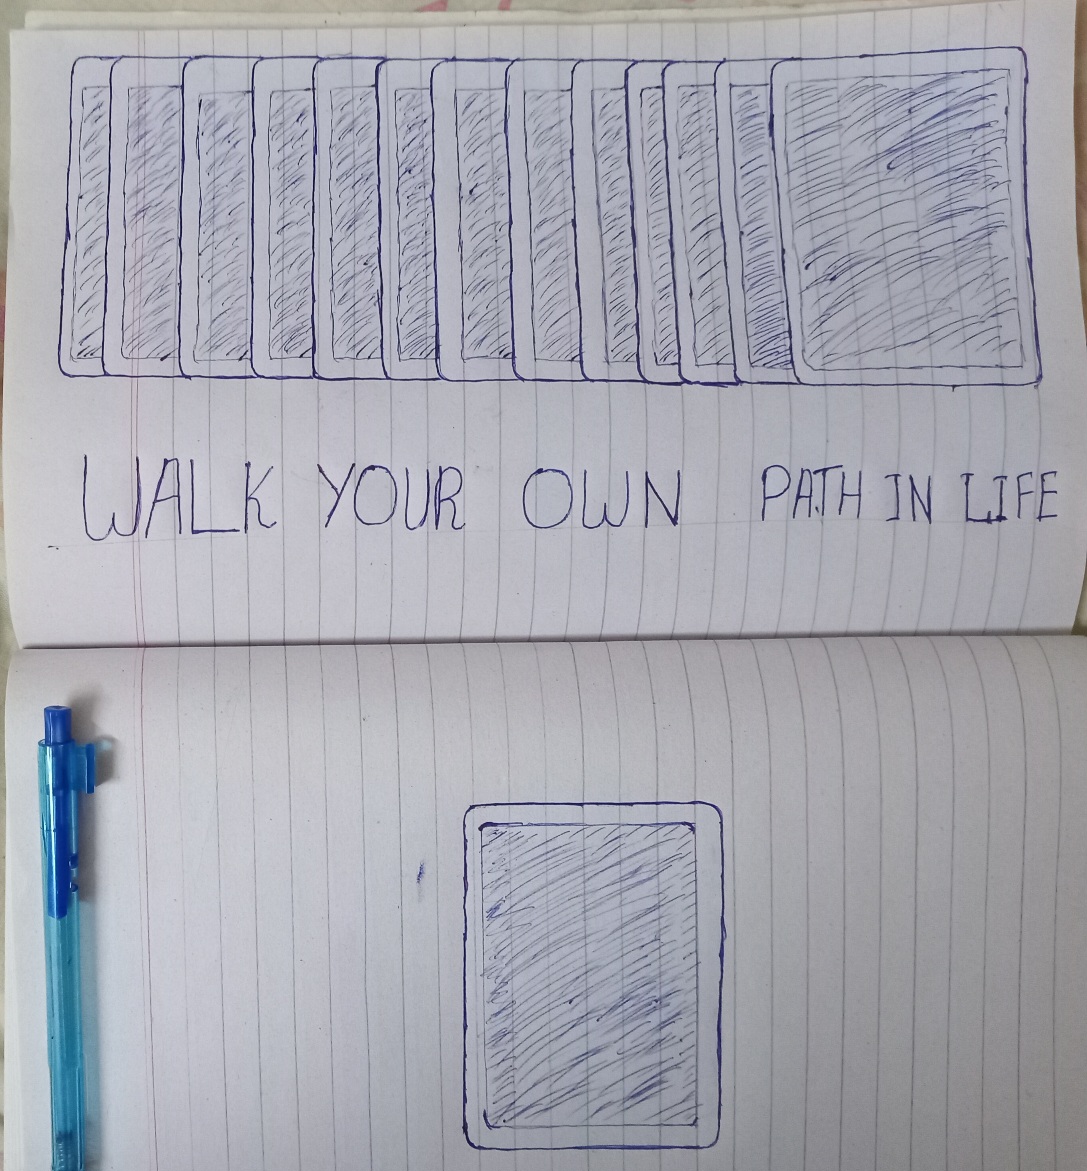 WALK YOUR OWN PATH IN LIFE